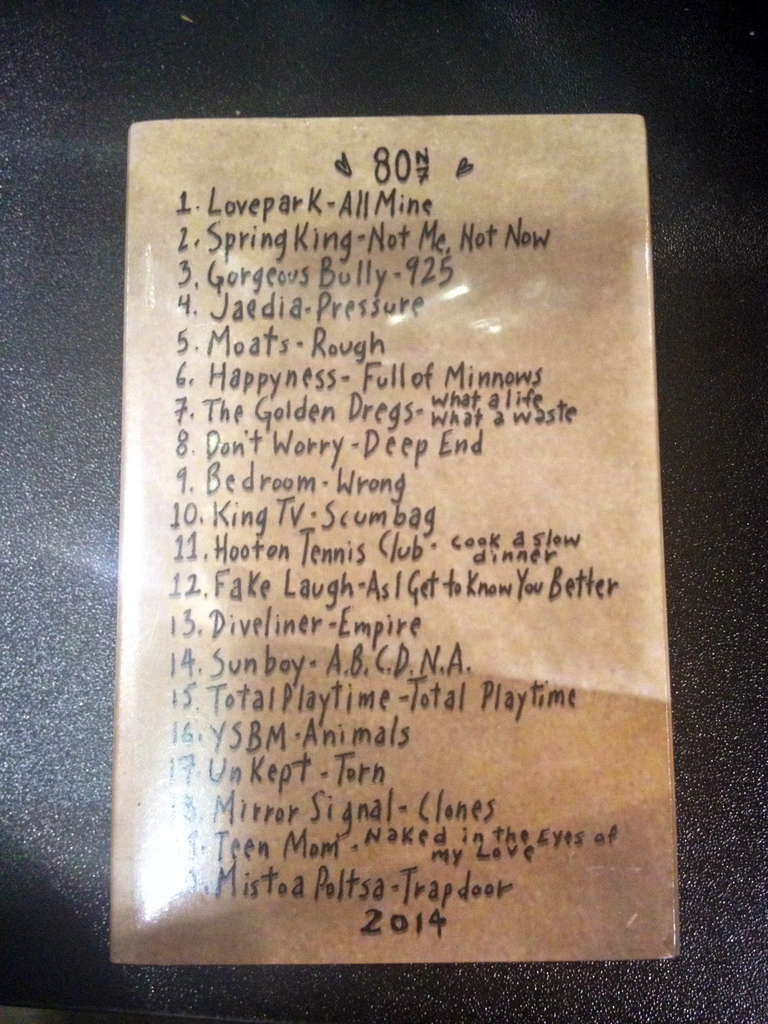 80 N 7
1. Lovepark - All Mine
2. Spring King - Not Me, Not Now
3. Gorgeous Bully - 925
4. Jaedia - Pressure
5. Moats - Rough
6. Happyness - Full of Minnows
7. The Golden Dregs - What a life what a waste
8. Don't Worry - Deep End
9. Bedroom - Wrong
10. King TV - Scumbag
11. Hooton Tennis Club - Cook a slow dinner
12. Fake Laugh - As I Get to Know You Better
13. Diveliner - Empire
14. Sunboy - A.B.C.D.N.A.
15. Total Playtime - Total Playtime
16. YSBM - Animals
17. Unkept - Torn
18. Mirror Signal - Clones
Teen Mom - Naked in the Eyes of my Love
Mistoa Poltsa - Trapdoor
2014